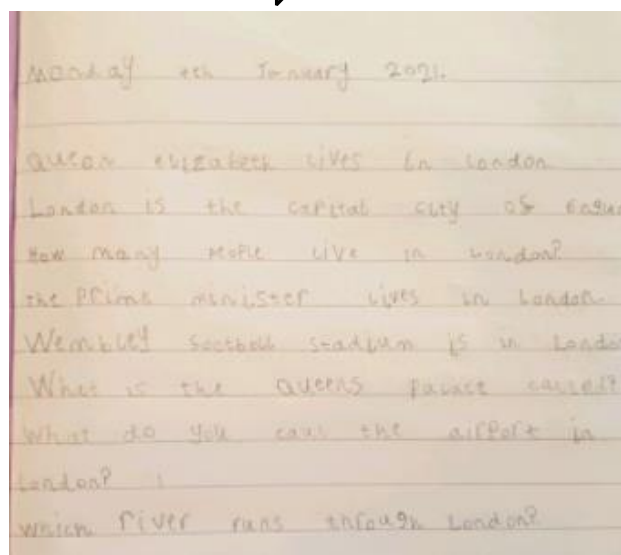 Monday 4th January 2021.
Queen elizabeth lives in London
London is the capital city of
How many people live in London?
the Prime minister lives in London.
Wembley football stadium is in
What is the Queens palace called?
What do you call the airport in
London?
which river runs through London?